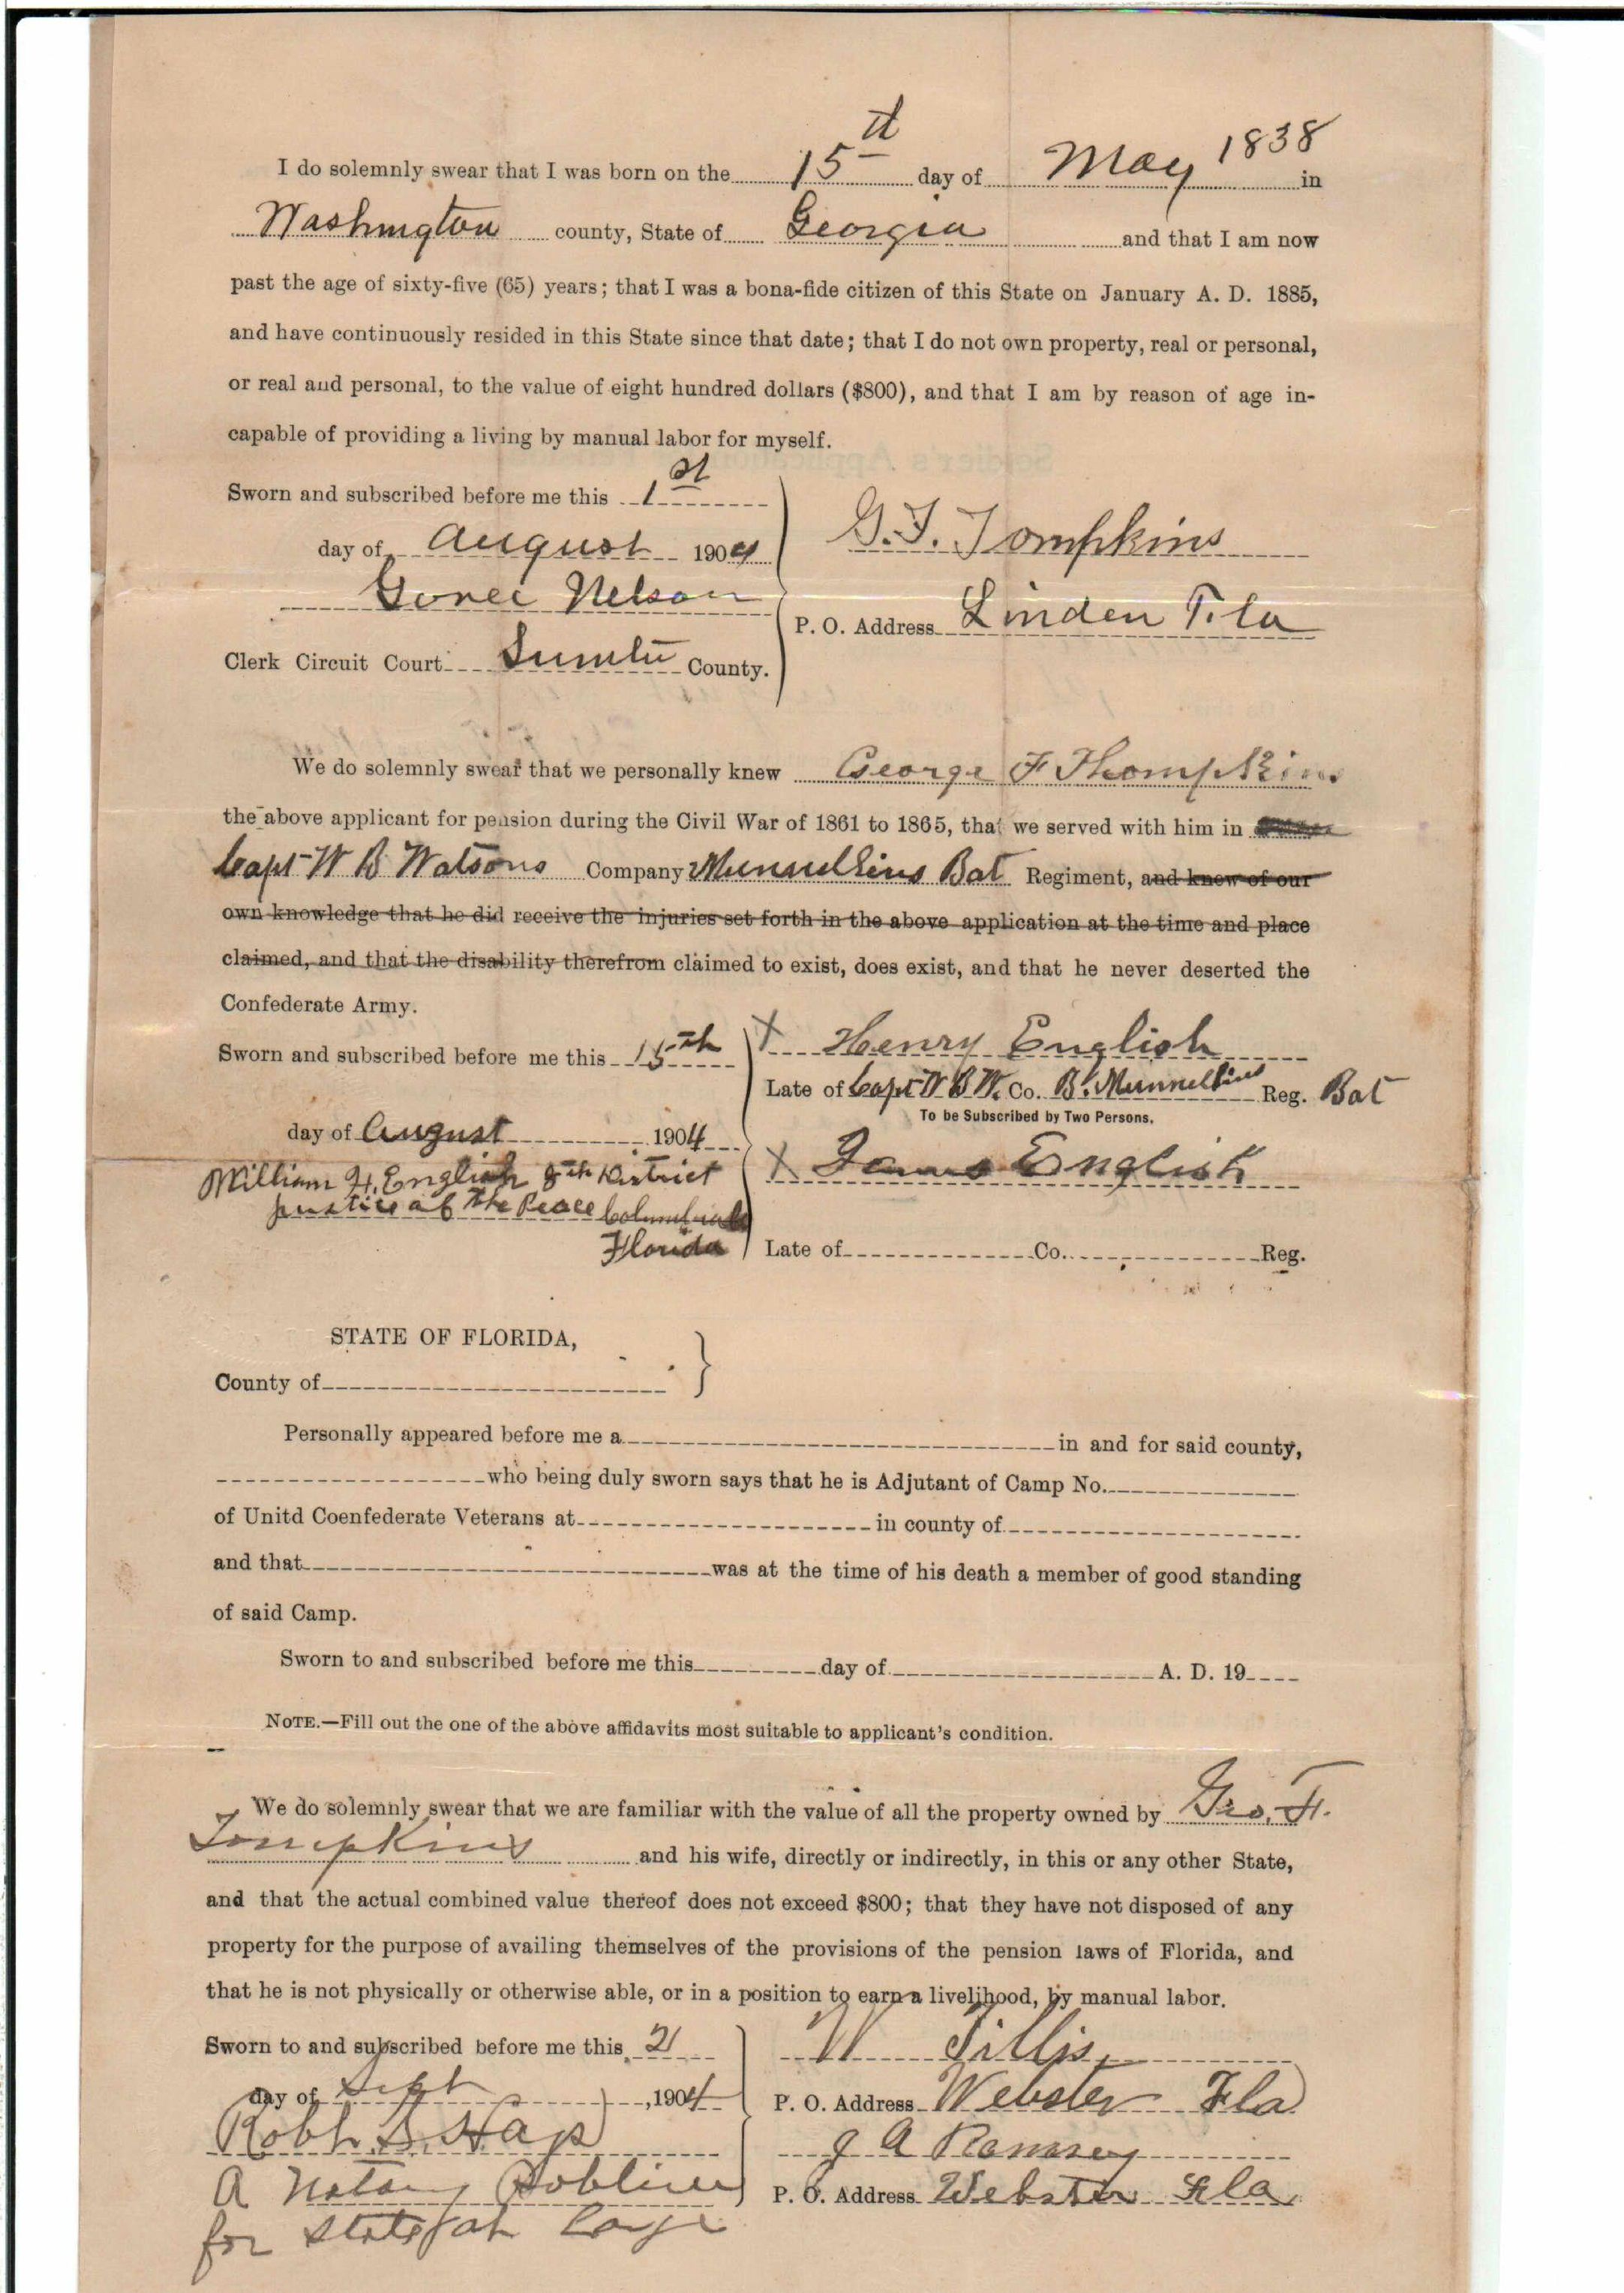 I do solemnly swear that I was born on the 15th day of May 1838 in
Washington county, State of Georgia and that I am now
past the age of sixty-five (65) years; that I was a bona-fide citizen of this State on January A. D. 1885,
and have continuously resided in this State since that date; that I do not own property, real or personal,
or real and personal, to the value of eight hundred dollars ($800), and that I am by reason of age in-
capable of providing a living by manual labor for myself.
Sworn and subscribed before me this 1st
day of August 1904
G. F. Tompkins
Nelson
P. O. Address Linden Fla
Clerk Circuit Court Sumter County.
We do solemnly swear that we personally knew George F Thompkins
the above applicant for pension during the Civil War of 1861 to 1865, that we served with him in
Capt W B Watsons Company Munnulkins Bat Regiment, and know of our
own knowledge that he did receive the injuries set forth in the above application at the time and place
claimed, and that the disability therefrom claimed to exist, does exist, and that he never deserted the
Confederate Army.
Sworn and subscribed before me this 15th
X Henry English
Late of Capt W B W. Co. B. Munnulkins Reg. Bat
To be Subscribed by Two Persons.
day of August 1904
X James English
William H. English 8th District
justice of the Peace
Florida
Late of Co. Reg.
STATE OF FLORIDA,
County of
Personally appeared before me a in and for said county,
who being duly sworn says that he is Adjutant of Camp No.
of Unitd Coenfederate Veterans at in county of
and that was at the time of his death a member of good standing
of said Camp.
Sworn to and subscribed before me this day of A. D. 19
NOTE.—Fill out the one of the above affidavits most suitable to applicant's condition.
We do solemnly swear that we are familiar with the value of all the property owned by Geo. F.
Tompkins and his wife, directly or indirectly, in this or any other State,
and that the actual combined value thereof does not exceed $800; that they have not disposed of any
property for the purpose of availing themselves of the provisions of the pension laws of Florida, and
that he is not physically or otherwise able, or in a position to earn a livelihood, by manual labor.
Sworn to and subscribed before me this 21
W Tillis
day of Sept, 1904
P. O. Address Webster Fla
Robt. S. Hap
J A Ramsey
A Notary Publice
P. O. Address Webster Fla
for State at Large